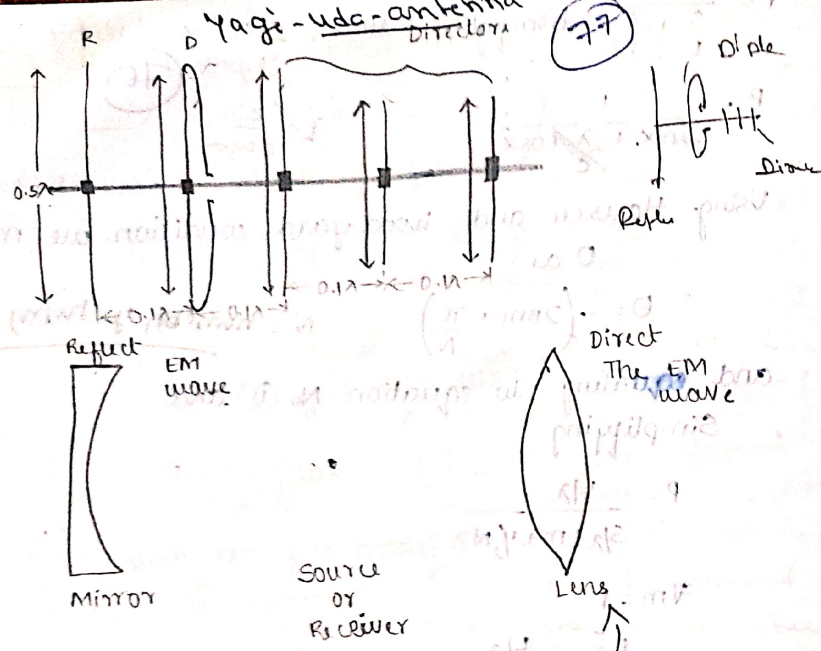 Yagi-uda-antenna
77
R
D
Directors
0.5λ
0.1λ
0.1λ
0.1λ
0.1λ
Diple
Reflect
EM
wave
Direct
The EM
wave
Mirror
Source
or
Receiver
Lens